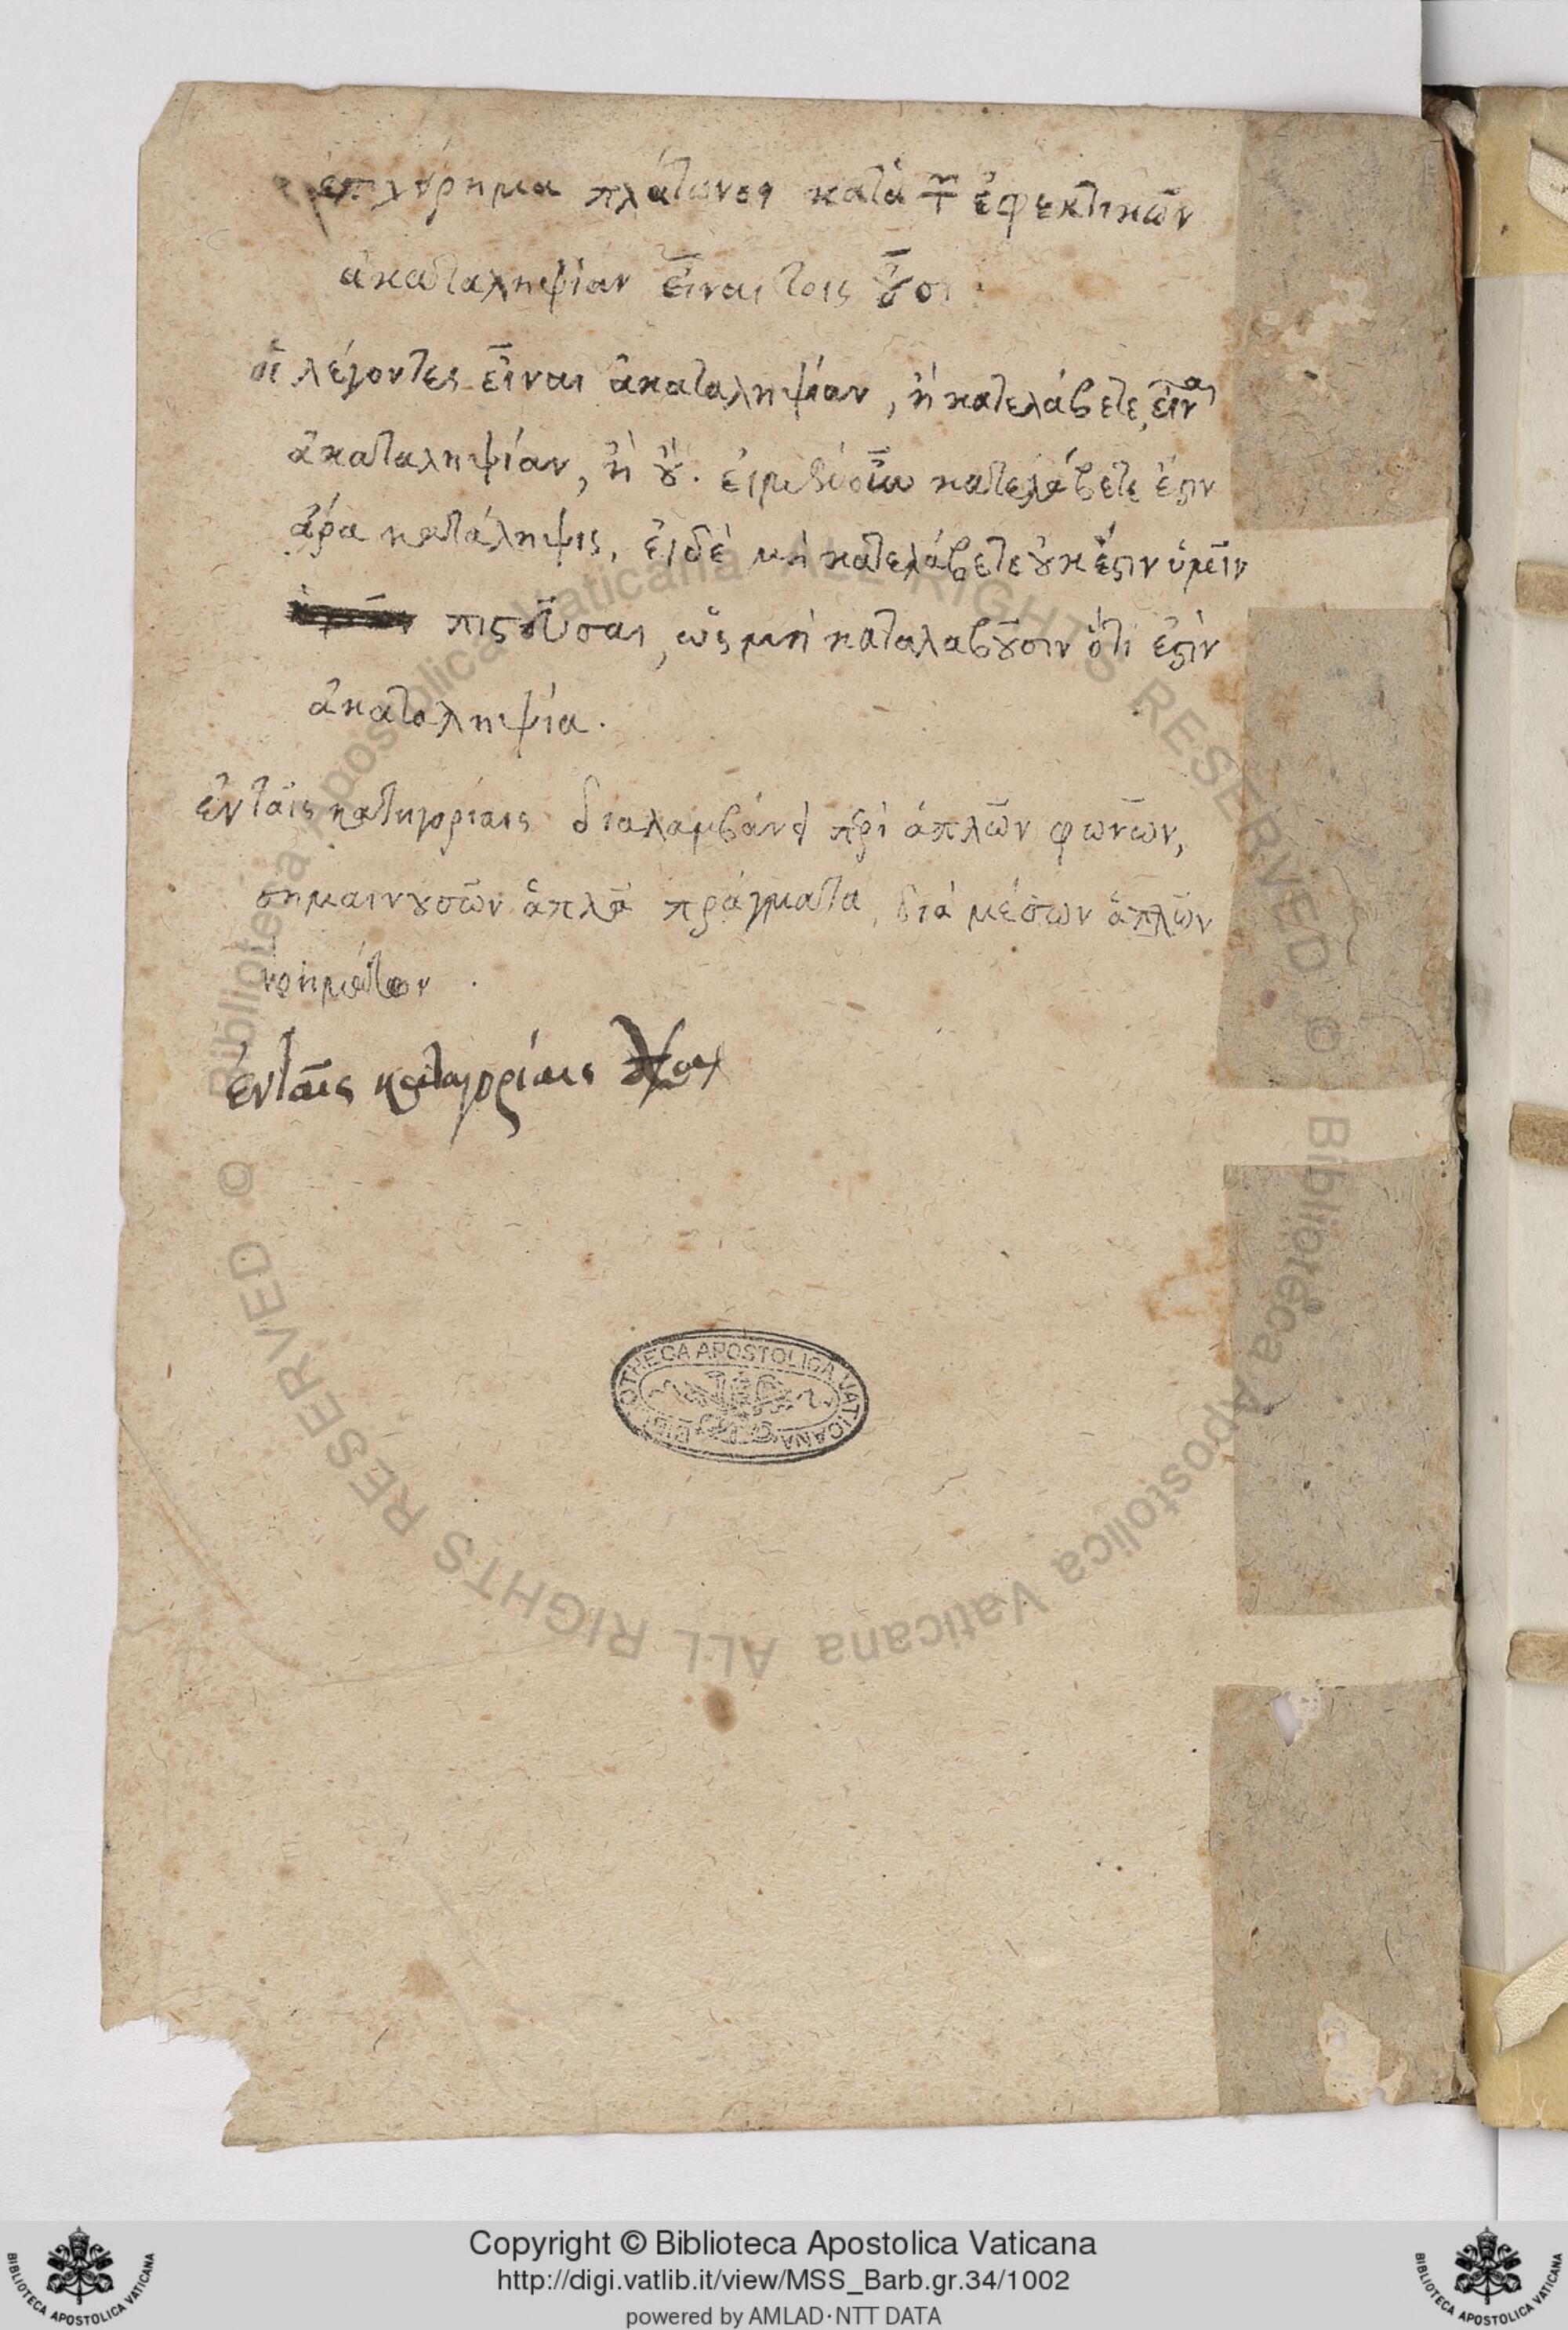 ἐπιχείρημα πλάτωνος κατὰ τ̅ ἐφεκτικῶν
ἀκαταληψίαν εἶναι τοῖς οὖσι.
οἱ λέγοντες εἶναι ἀκαταληψίαν, ἢ κατελάβετε, εἶναι
ἀκαταληψίαν, ἢ οὔ. κατελάβετε ἔστιν
ἄρα κατάληψις, εἰ δὲ μὴ κατελάβετε οὐκ ἔστιν ὑμῖν
πιστεῦσαι, ὡς μὴ καταλαβοῦσιν ὅτι ἐστὶν
ἀκαταληψία.
ἐν ταῖς κατηγορίαις διαλαμβάνει περὶ ἁπλῶν φωνῶν,
σημαινουσῶν ἁπλᾶ πράγματα, διὰ μέσων ἁπλῶν
νοημάτων.
ἐν ταῖς κατηγορίαις
BIBLIOTHECA APOSTOLICA VATICANA
© Biblioteca Apostolica Vaticana ALL RIGHTS RESERVED © Biblioteca Apostolica Vaticana ALL RIGHTS RESERVED
Copyright © Biblioteca Apostolica Vaticana
http://digi.vatlib.it/view/MSS_Barb.gr.34/1002
powered by AMLAD·NTT DATA
BIBLIOTECA APOSTOLICA VATICANA
BIBLIOTECA APOSTOLICA VATICANA